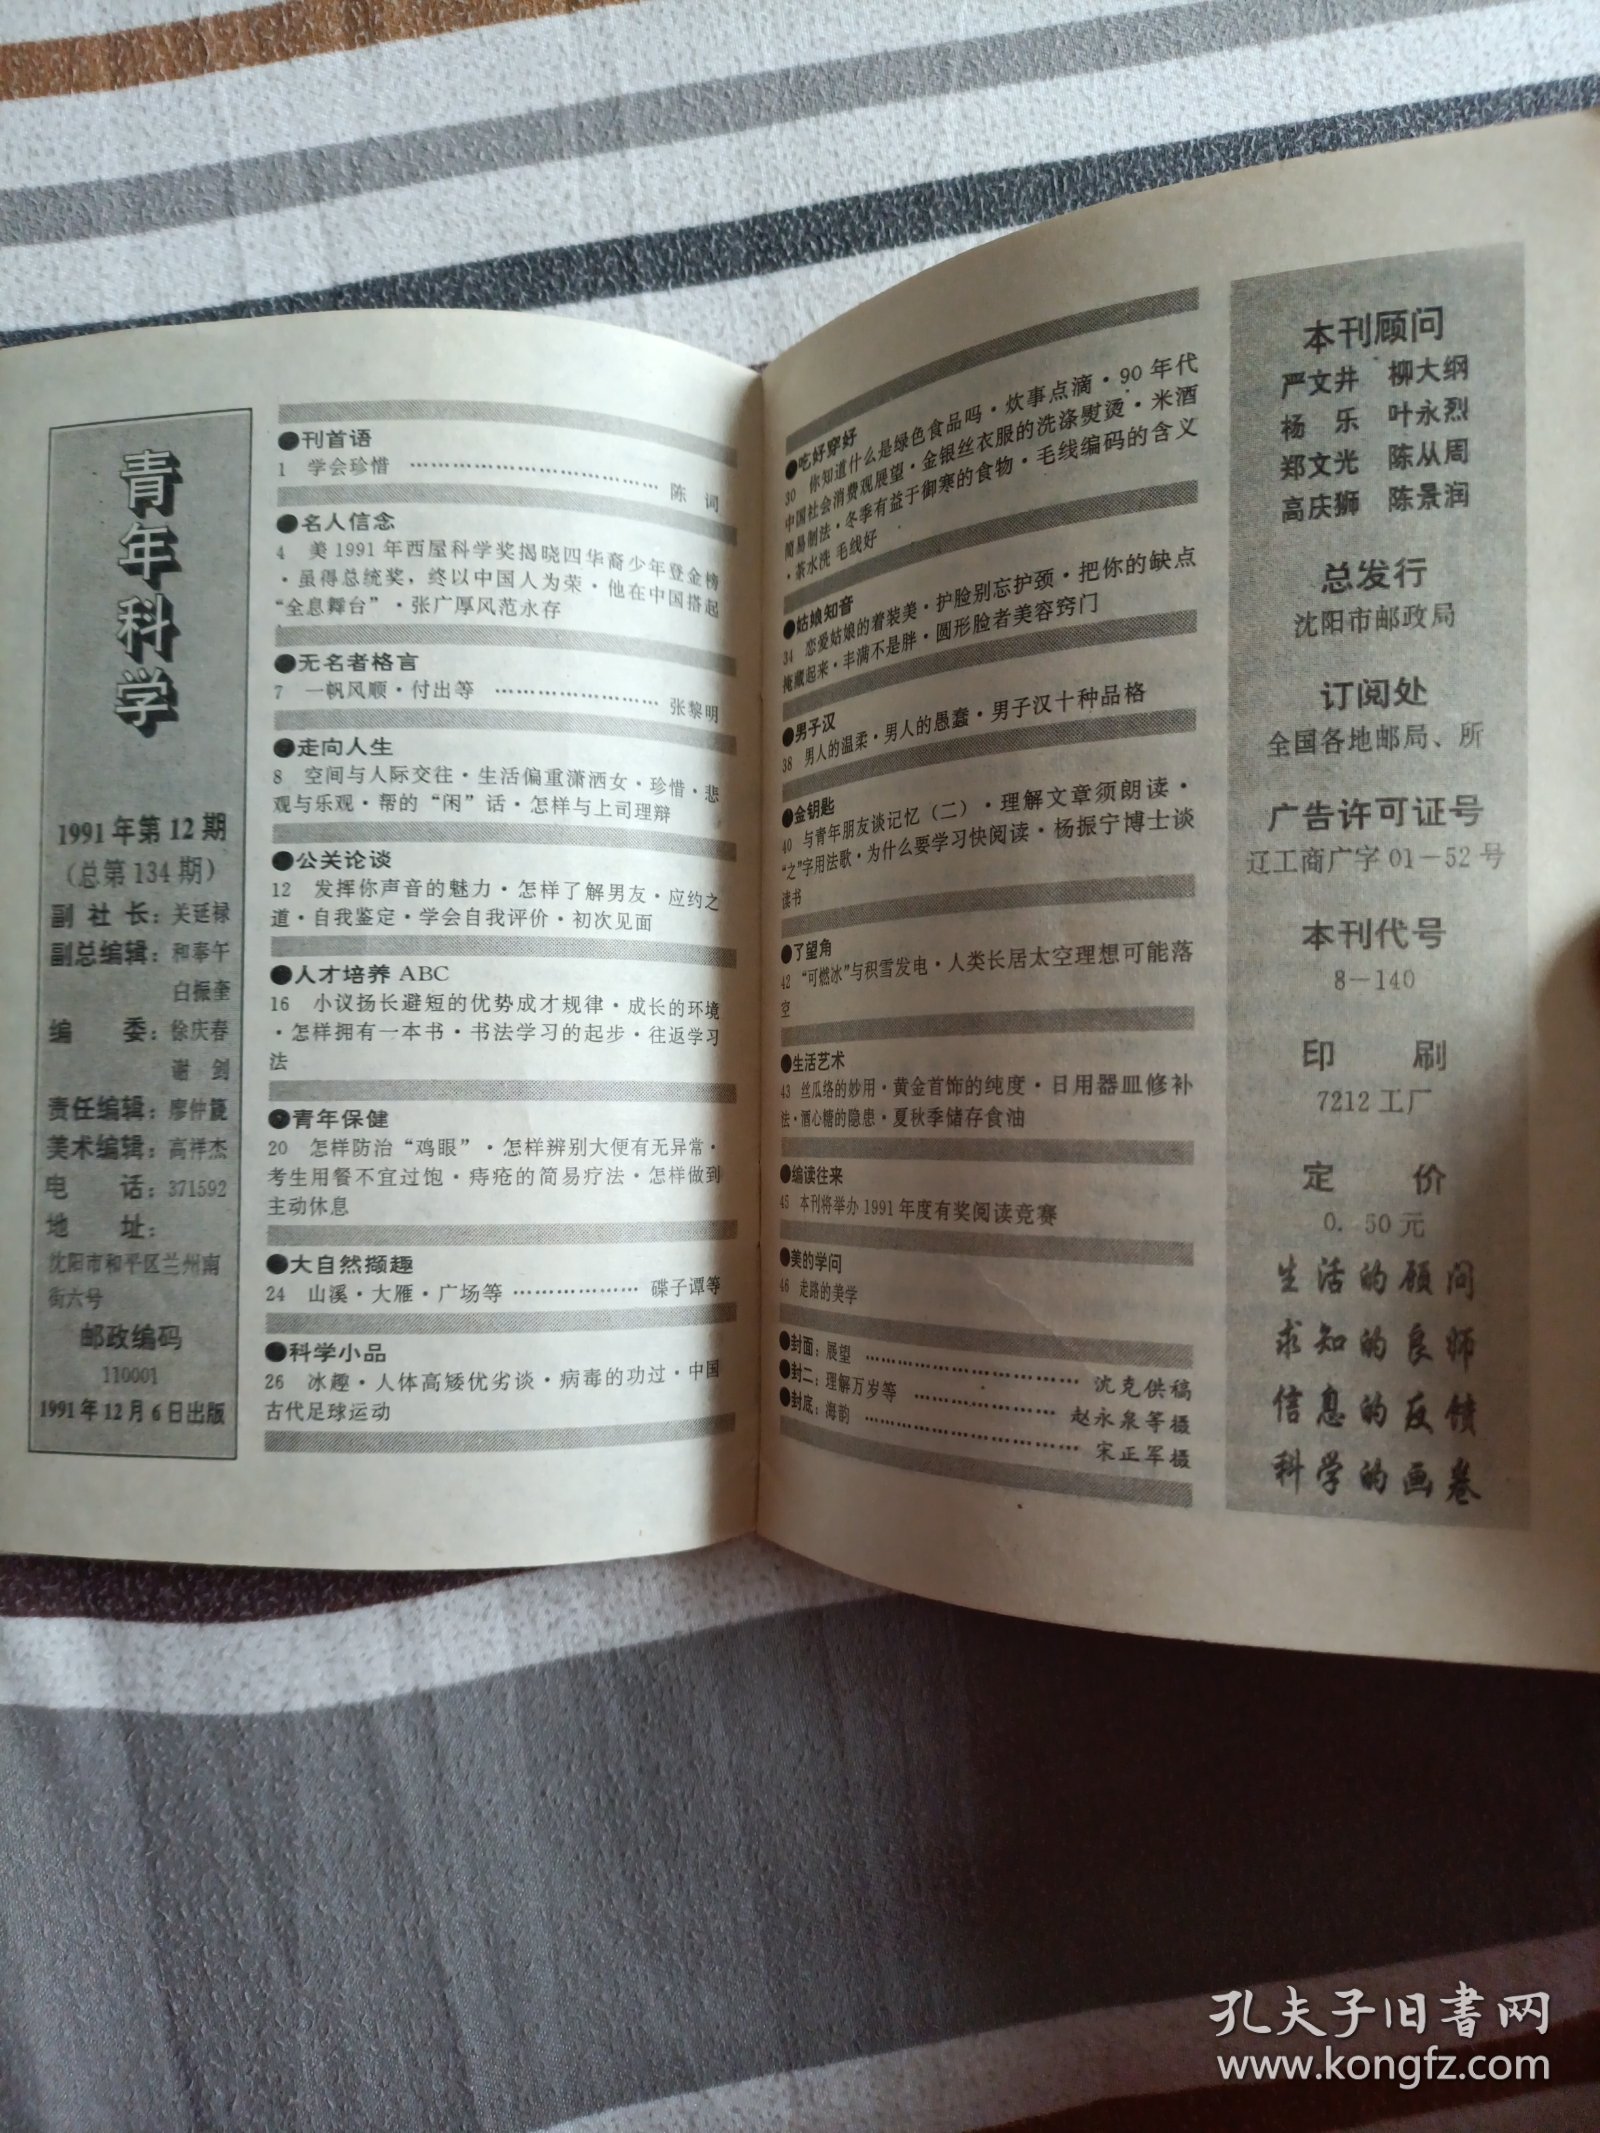 青年科学
1991年第12期
（总第134期）
副 社 长：关延禄
副总编辑：和奉午
白振奎
编 委：徐庆春
谢 剑
责任编辑：廖仲篪
美术编辑：高祥杰
电 话：371592
地 址：
沈阳市和平区兰州南
街六号
邮政编码
110001
1991年12月6日出版
●刊首语
1 学会珍惜 …………………………… 陈 词
●名人信念
4 美1991年西屋科学奖揭晓四华裔少年登金榜
·虽得总统奖，终以中国人为荣·他在中国搭起
“全息舞台”·张广厚风范永存
●无名者格言
7 一帆风顺·付出等 ………………… 张黎明
●走向人生
8 空间与人际交往·生活偏重潇洒女·珍惜·悲
观与乐观·帮的“闲”话·怎样与上司理辩
●公关论谈
12 发挥你声音的魅力·怎样了解男友·应约之
道·自我鉴定·学会自我评价·初次见面
●人才培养ABC
16 小议扬长避短的优势成才规律·成长的环境
·怎样拥有一本书·书法学习的起步·往返学习
法
●青年保健
20 怎样防治“鸡眼”·怎样辨别大便有无异常·
考生用餐不宜过饱·痔疮的简易疗法·怎样做到
主动休息
●大自然撷趣
24 山溪·大雁·广场等 ……………… 碟子谭等
●科学小品
26 冰趣·人体高矮优劣谈·病毒的功过·中国
古代足球运动
●吃好穿好
30 你知道什么是绿色食品吗·炊事点滴·90年代
中国社会消费观展望·金银丝衣服的洗涤熨烫·米酒
简易制法·冬季有益于御寒的食物·毛线编码的含义
·茶水洗 毛线好
●姑娘知音
34 恋爱姑娘的着装美·护脸别忘护颈·把你的缺点
掩藏起来·丰满不是胖·圆形脸者美容窍门
●男子汉
38 男人的温柔·男人的愚蠢·男子汉十种品格
●金钥匙
40 与青年朋友谈记忆（二）·理解文章须朗读·
“之”字用法歌·为什么要学习快阅读·杨振宁博士谈
读书
●了望角
42 “可燃冰”与积雪发电·人类长居太空理想可能落
空
●生活艺术
43 丝瓜络的妙用·黄金首饰的纯度·日用器皿修补
法·酒心糖的隐患·夏秋季储存食油
●编读往来
45 本刊将举办1991年度有奖阅读竞赛
●美的学问
46 走路的美学
●封面：展望 ………………………… 沈克供稿
●封二：理解万岁等 ………………… 赵永泉等摄
●封底：海韵 ………………………… 宋正军摄
本刊顾问
严文井 柳大纲
杨 乐 叶永烈
郑文光 陈从周
高庆狮 陈景润
总发行
沈阳市邮政局
订阅处
全国各地邮局、所
广告许可证号
辽工商广字01—52号
本刊代号
8—140
印 刷
7212工厂
定 价
0.50元
生活的顾问
求知的良师
信息的反馈
科学的画卷
孔夫子旧书网
www.kongfz.com